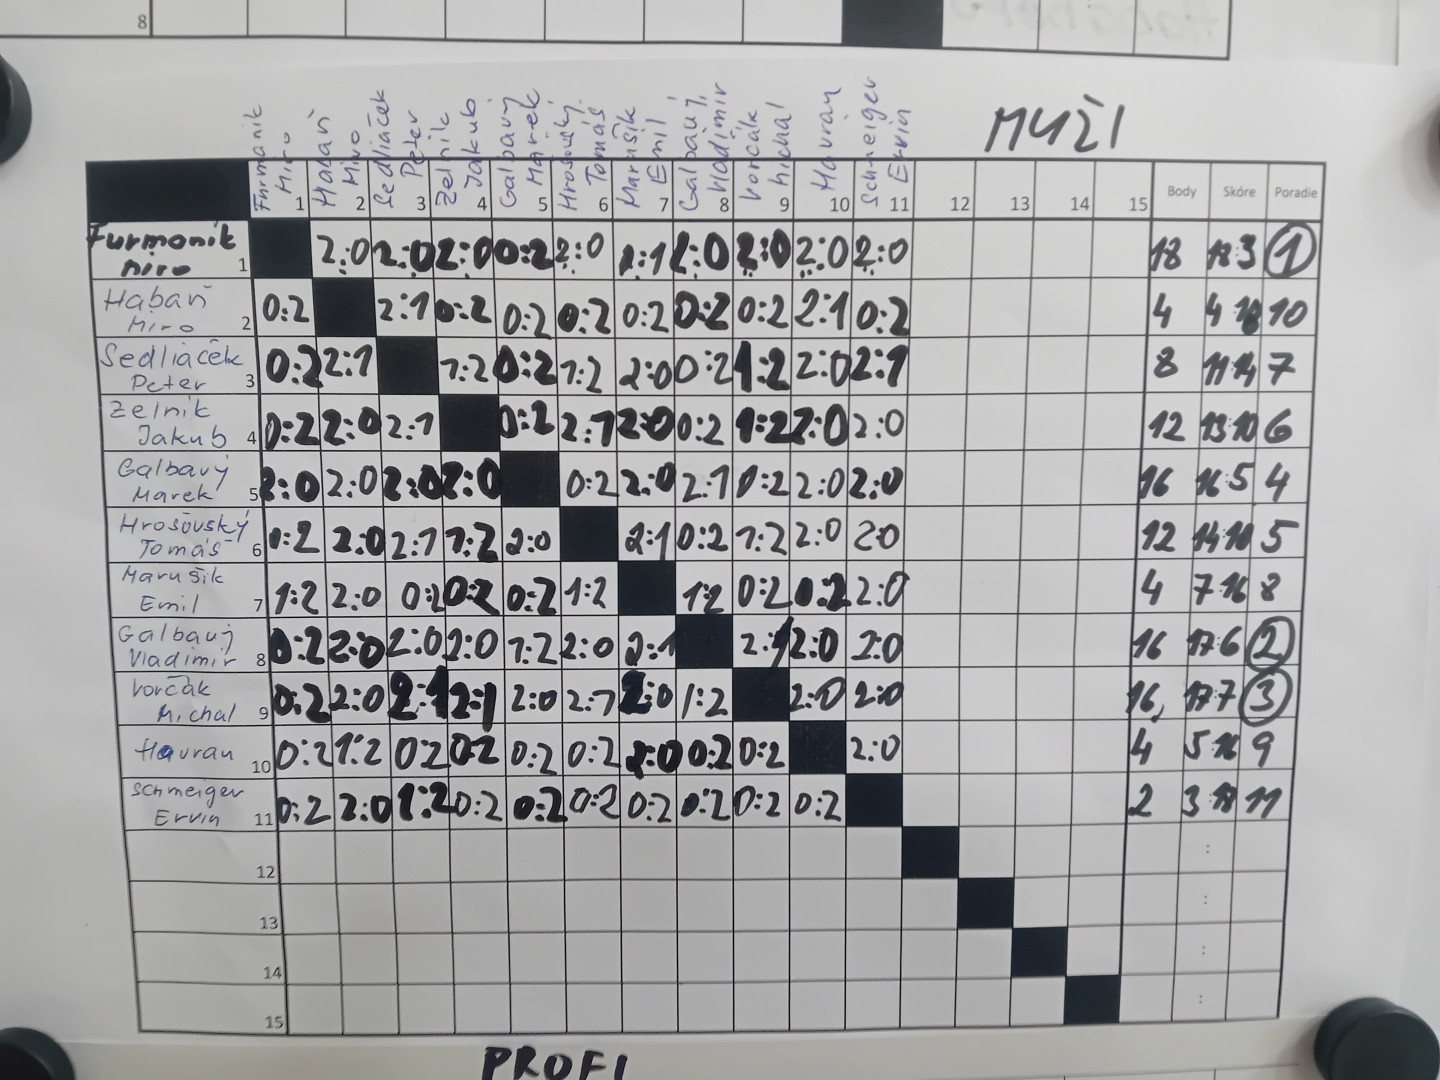 8
MUŽI
Furmanik Miro 1
Habaň Miro 2
Sedliaček Peter 3
Zelnik Jakub 4
Galbavý Marek 5
Hrošovský Tomáš 6
Marušik Emil 7
Galbavý Vladimir 8
Vorčák Michal 9
Havran 10
Schmeiger Ervin 11
12 13 14 15 Body Skóre Poradie
Furmanik 2:0 2:0 2:0 0:2 2:0 2:1 2:0 2:0 2:0 2:0 18 18:3 1
Miro 1
Habaň 0:2 2:1 0:2 0:2 0:2 0:2 0:2 0:2 2:1 0:2 4 4:18 10
Miro 2
Sedliaček 0:2 2:1 1:2 0:2 1:2 2:0 0:2 1:2 2:0 2:1 8 11:14 7
Peter 3
Zelnik 0:2 2:0 2:1 0:2 2:1 2:0 0:2 1:2 2:0 2:0 12 13:10 6
Jakub 4
Galbavý 2:0 2:0 2:0 2:0 0:2 2:0 2:1 0:2 2:0 2:0 16 16:5 4
Marek 5
Hrošovský 0:2 2:0 2:1 1:2 2:0 2:1 0:2 1:2 2:0 2:0 12 14:10 5
Tomáš 6
Marušik 1:2 2:0 0:2 0:2 0:2 1:2 1:2 0:2 0:2 2:0 4 7:16 8
Emil 7
Galbavý 0:2 2:0 2:0 2:0 1:2 2:0 2:1 2:1 2:0 2:0 16 17:6 2
Vladimir 8
Vorčák 0:2 2:0 2:1 2:1 2:0 2:1 2:0 1:2 2:0 2:0 16 17:7 3
Michal 9
Havran 0:2 1:2 0:2 0:2 0:2 0:2 2:0 0:2 0:2 2:0 4 5:16 9
10
Schmeiger 0:2 2:0 1:2 0:2 0:2 0:2 0:2 0:2 0:2 0:2 2 3:18 11
Ervin 11
12 :
13 :
14 :
15 :
PROFI